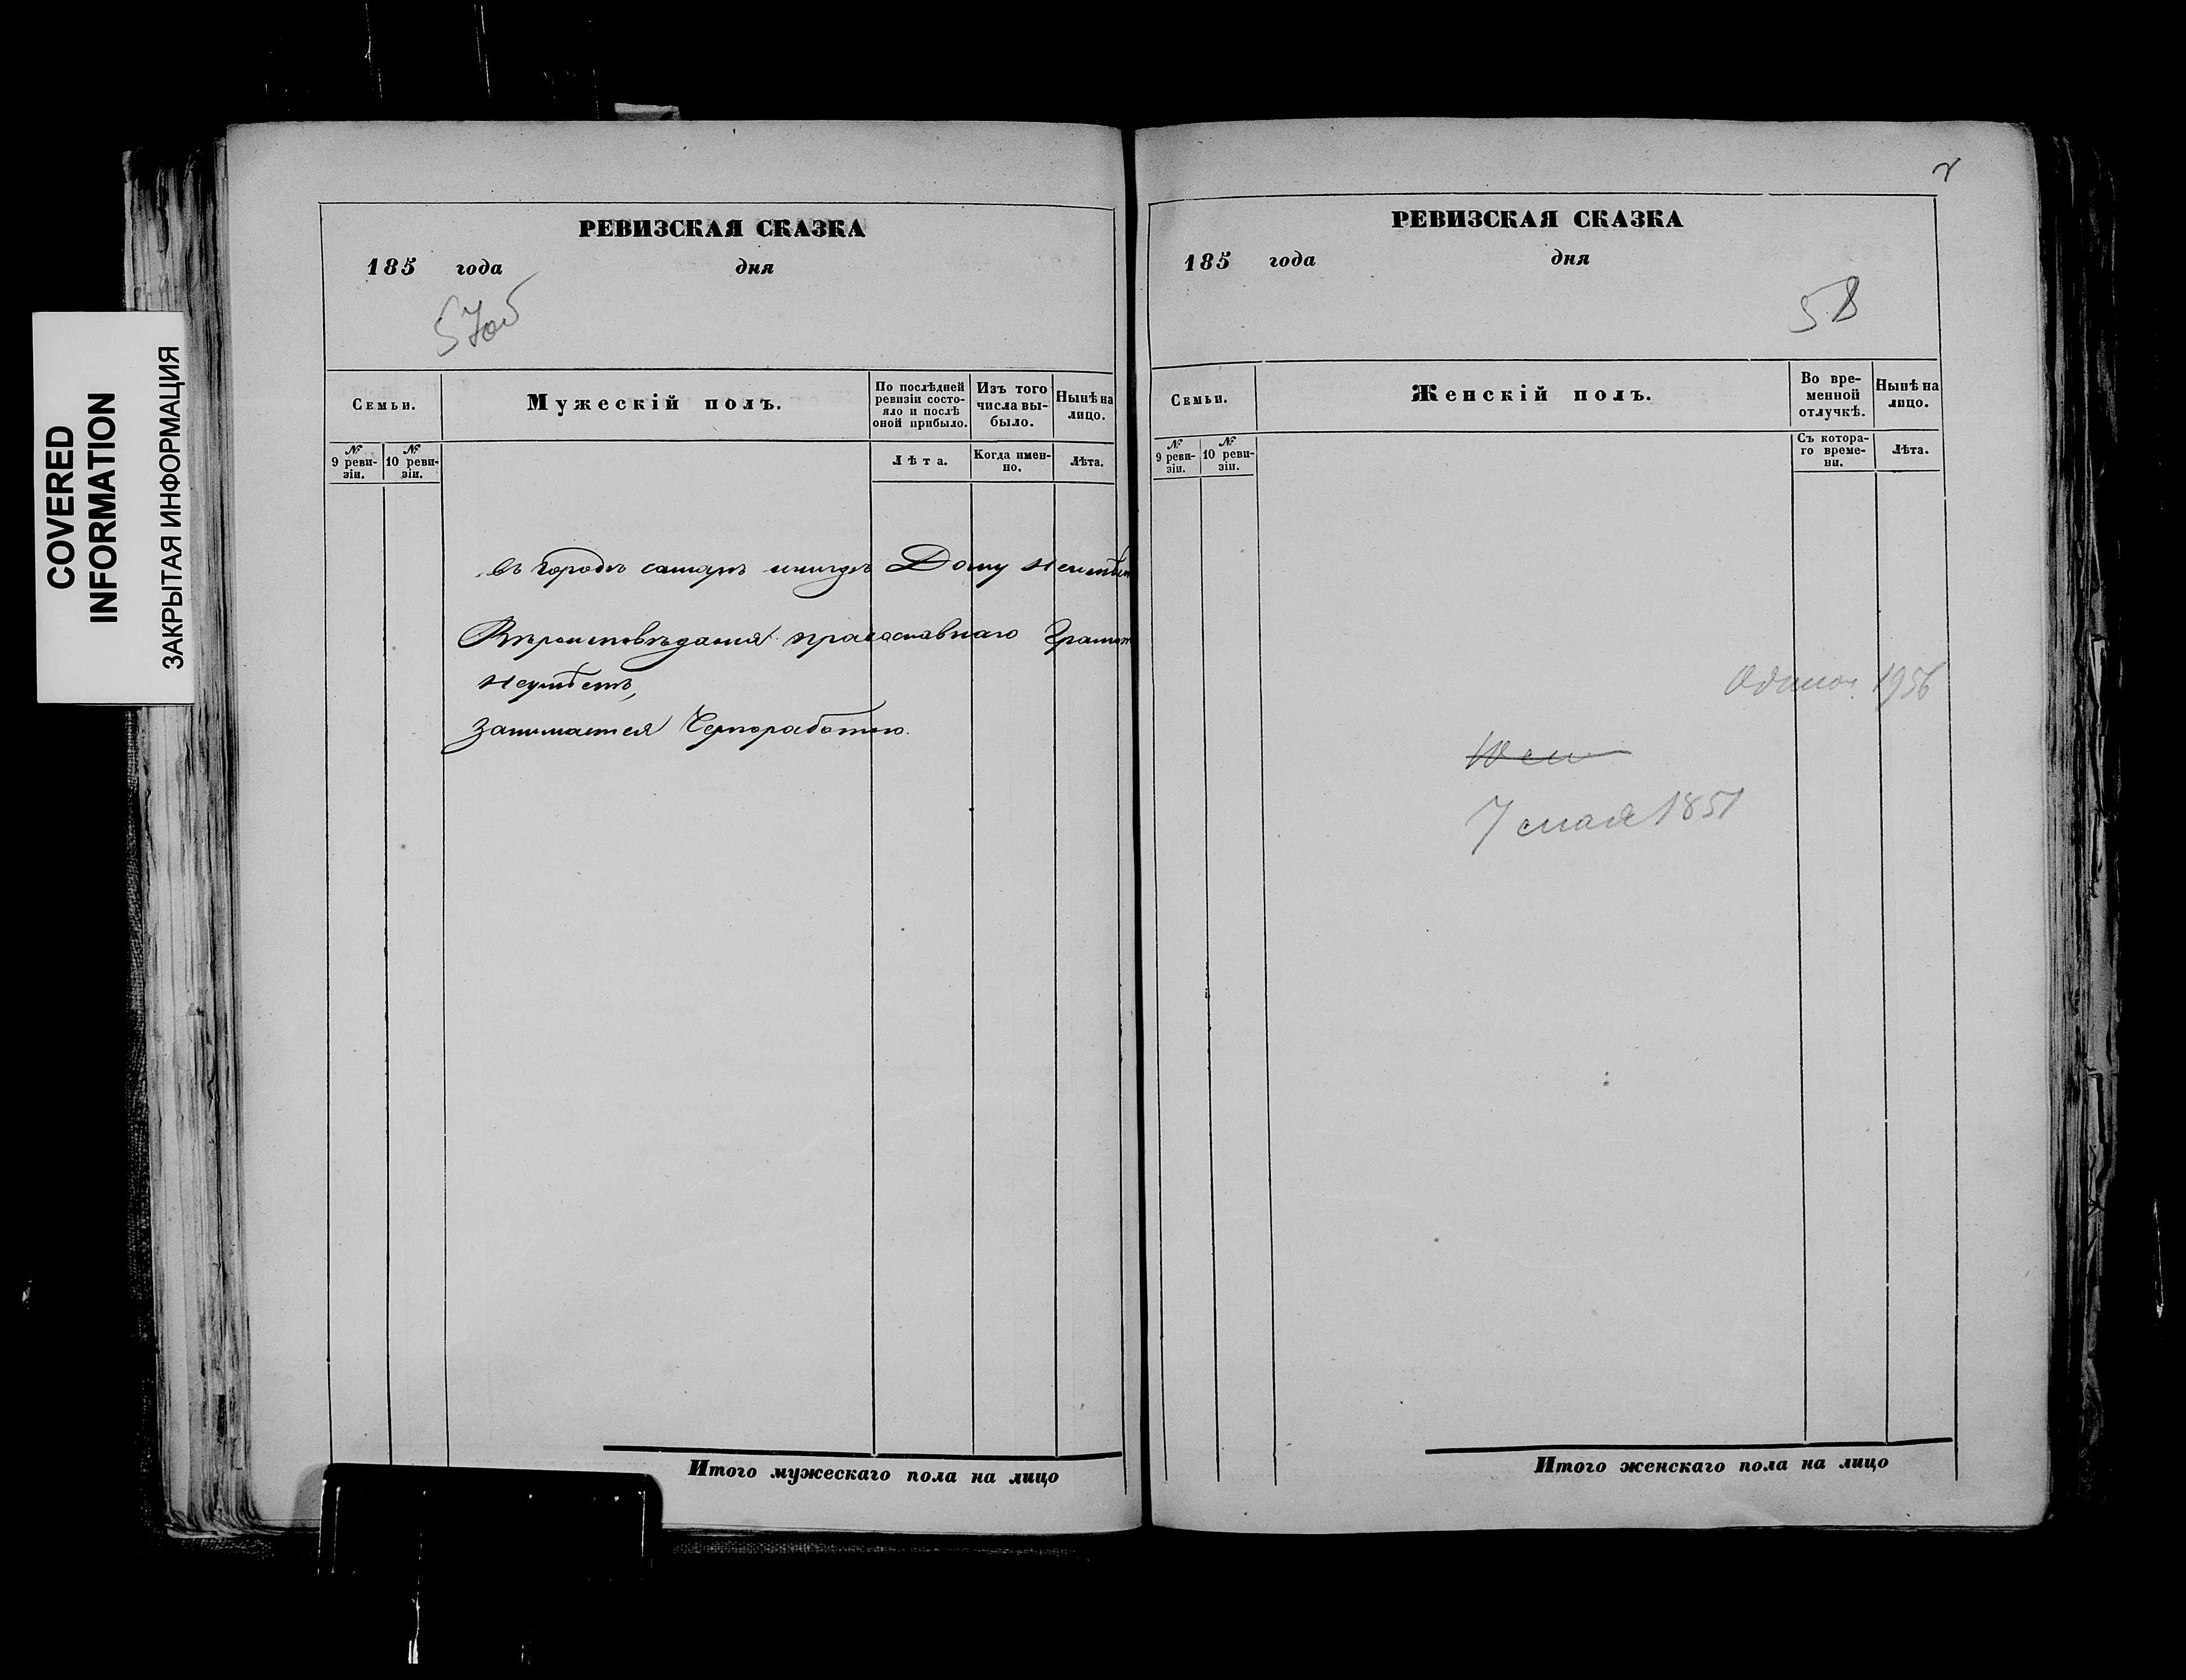 COVERED
INFORMATION
ЗАКРЫТАЯ ИНФОРМАЦИЯ
РЕВИЗСКАЯ СКАЗКА
185 года дня
57об
Семьи.
Мужескій полъ.
По послѣдней
ревизіи состо-
яло и послѣ
оной прибыло.
Изъ того
числа вы-
было.
Нынѣ на
лицо.
№
9 реви-
зіи.
№
10 реви-
зіи.
Лѣта.
Когда имен-
но.
Лѣта.
въ городѣ самарѣ Дому
Вѣроисповѣдания православнаго Грамот
неумѣетъ,
занимается Чернороботою.
Итого мужескаго пола на лицо
РЕВИЗСКАЯ СКАЗКА
185 года дня
58
Семьи.
Женскій полъ.
Во вре-
менной
отлучкѣ.
Нынѣ на
лицо.
№
9 реви-
зіи.
№
10 реви-
зіи.
Съ котора-
го време-
ни.
Лѣта.
1956
7 мая 1851
Итого женскаго пола на лицо